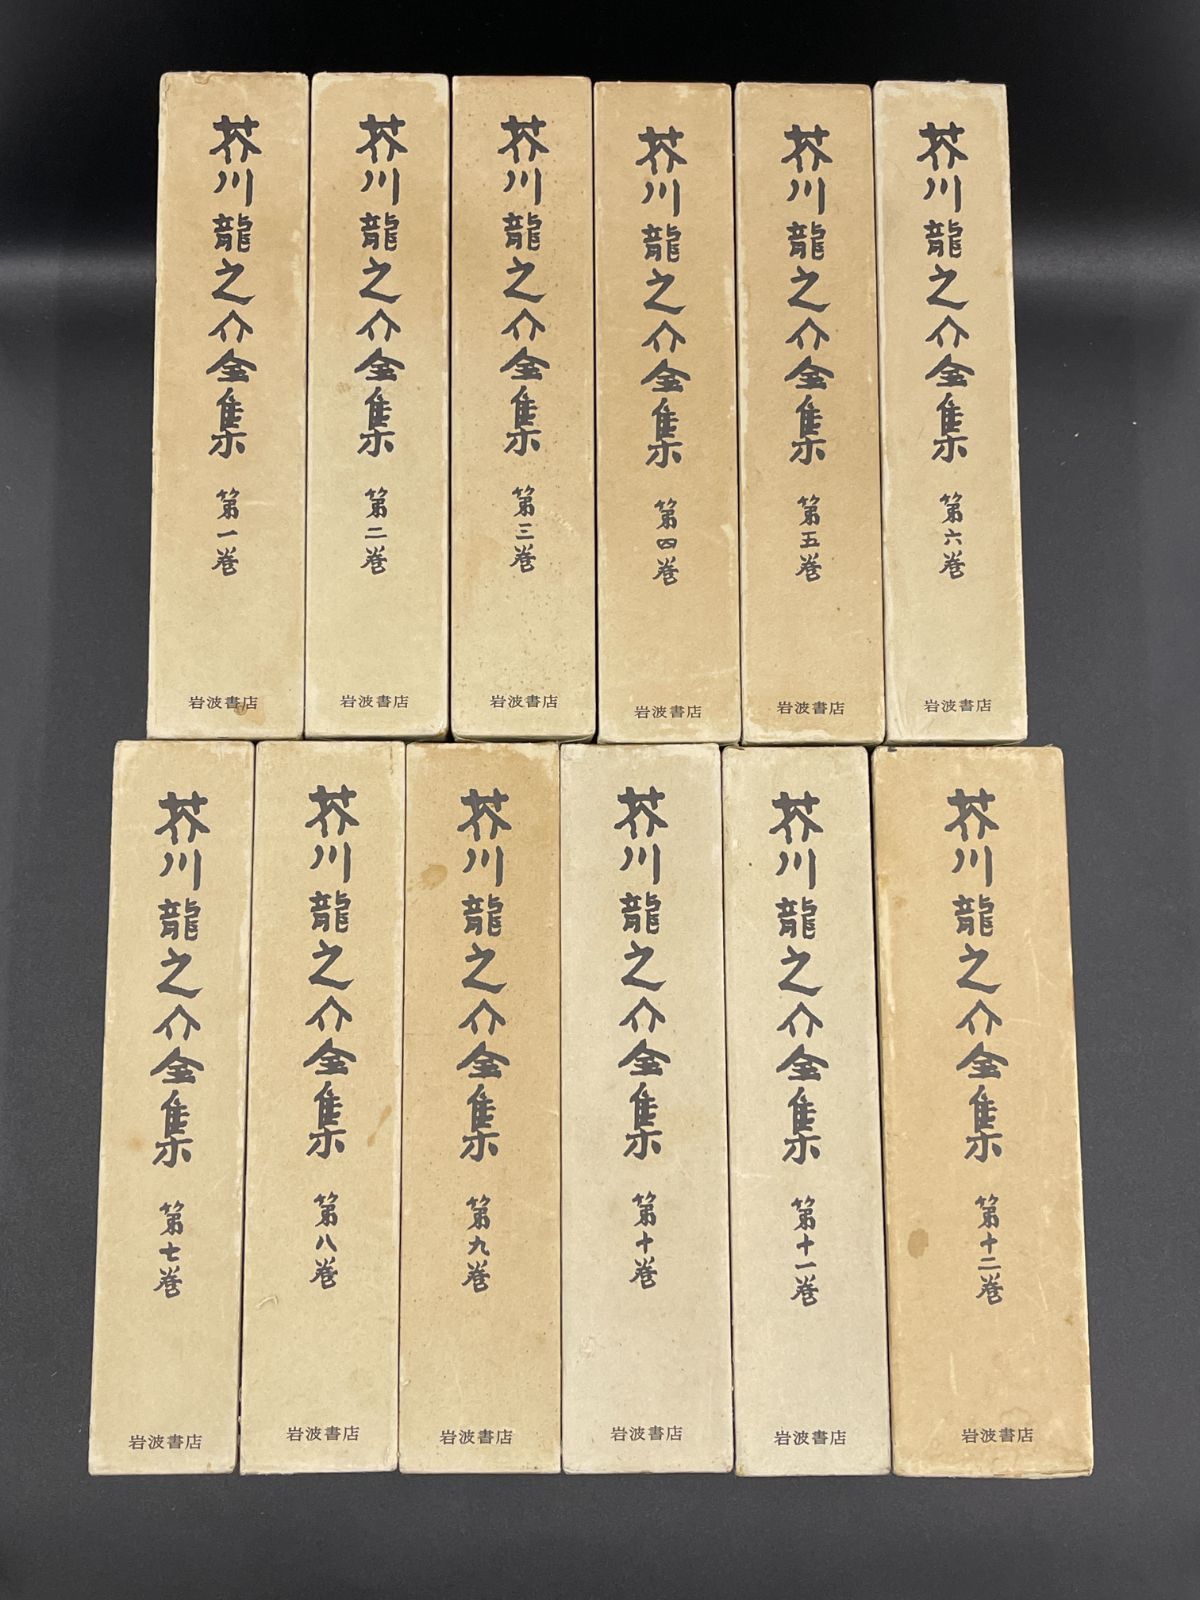 芥川龍之介全集
第一巻
岩波書店
芥川龍之介全集
第二巻
岩波書店
芥川龍之介全集
第三巻
岩波書店
芥川龍之介全集
第四巻
岩波書店
芥川龍之介全集
第五巻
岩波書店
芥川龍之介全集
第六巻
岩波書店
芥川龍之介全集
第七巻
岩波書店
芥川龍之介全集
第八巻
岩波書店
芥川龍之介全集
第九巻
岩波書店
芥川龍之介全集
第十巻
岩波書店
芥川龍之介全集
第十一巻
岩波書店
芥川龍之介全集
第十二巻
岩波書店